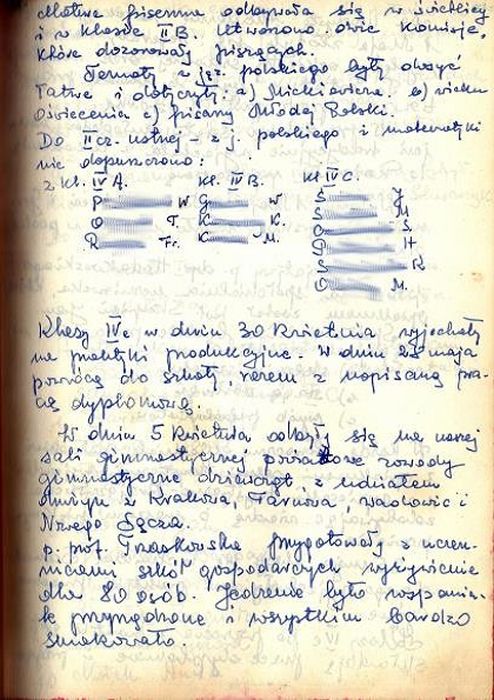 Matura pisemna odbywała się w świetlicy
i w klasie II B. Utworzono dwie komisje,
które dozorowały piszących.
Tematy z jęz. polskiego były dosyć
łatwe i dotyczyły: a) Mickiewicza b) wieku
Oświecenia c) pisarzy Młodej Polski.
Do II cz. ustnej - z j. polskiego i matematyki
nie dopuszczono:
z kl. IV A. kl. IV B. kl. IV C.
P W G W S J
O T. K K. S M
R Fr. K M. C S.
P H
S K
O M.
Klasy IVc w dniu 30 kwietnia wyjechały
na praktyki produkcyjne. W dniu 25 maja
powrócą do szkoły, razem z napisaną pra-
cą dyplomową.
W dniu 5 kwietnia odbyły się na naszej
sali gimnastycznej powiatowe zawody
gimnastyczne dziewcząt, z udziałem
drużyn z Krakowa, Tarnowa, Wadowic i
Nowego Sącza.
p. prof. przygotowały z uczen-
nicami szkół gospodarczych wyżywienie
dla 80 osób. Jedzenie było wspania-
le przyrządzone i wszystkim bardzo
smakowało.